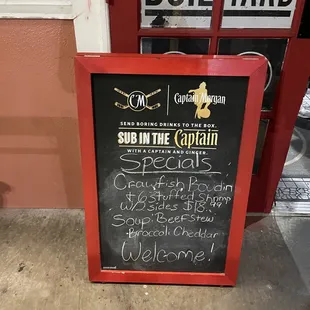 YARD
CM
Captain Morgan
SEND BORING DRINKS TO THE BOX.
SUB IN THE Captain
WITH A CAPTAIN AND GINGER.
Specials
Crawfish Poudin
+ 6 stuffed shrimp
w/ 2 sides $18.99
Soup: Beef Stew
Broccoli Cheddar
Welcome!